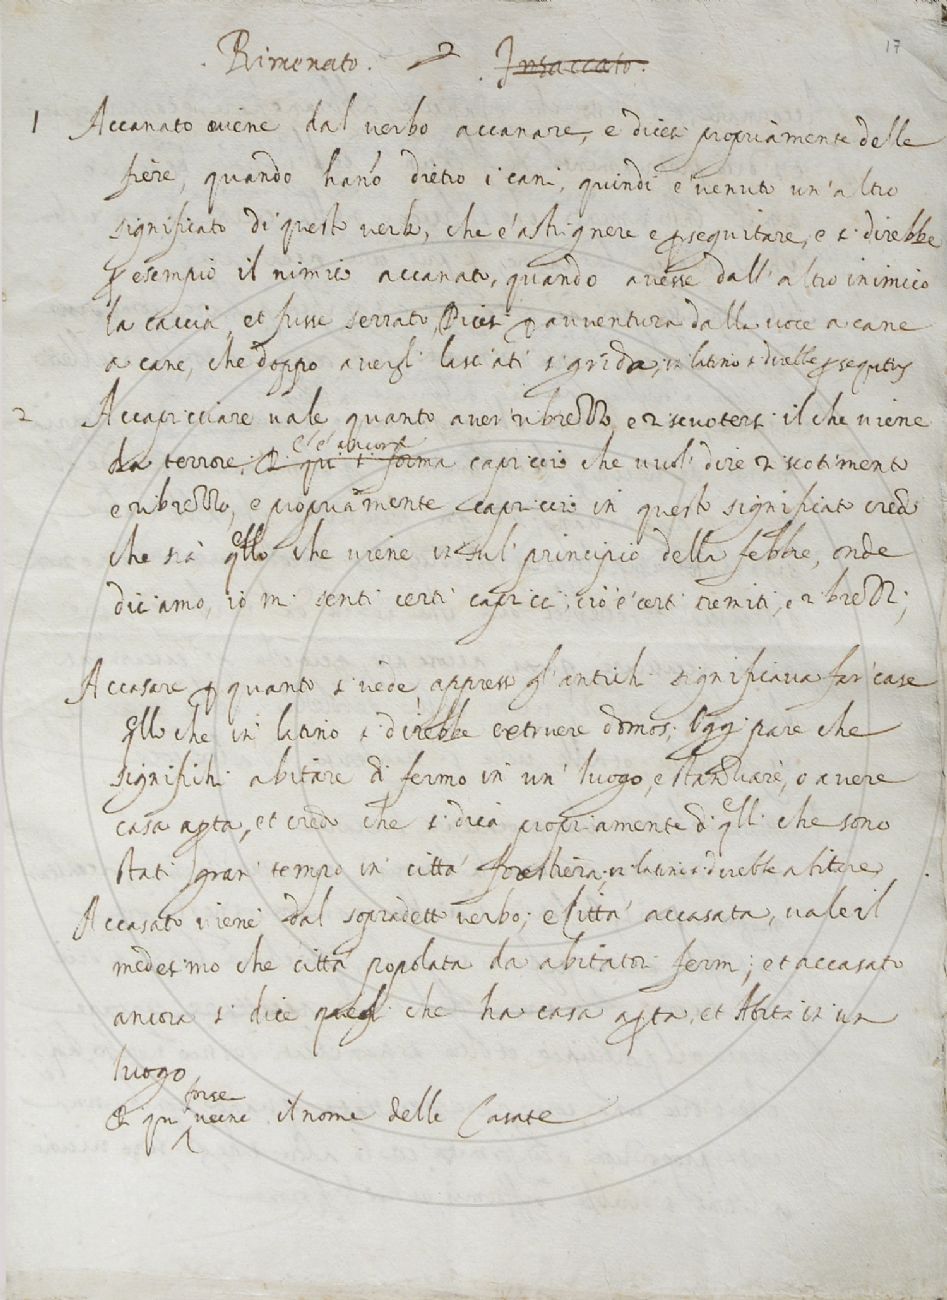 17
Rimenato. 2 Insaccato.
1 Accanato viene dal verbo accanare, e dicesi propriamente delle
fiere, quando hano dietro i cani, quindi è venuto un'altro
significato di questo verbo, che è astrignere e pseguitare, e si direbbe
p esempio il nimico accanato, quando avesse dall'altro inimico
la caccia, et fusse serrato, Dicesi p avventura dalla voce a cane
a cane, che doppo avergli lasciati si grida, in latino si direbbe psequtus
2 Accapricciare vale quanto aver ribrezzo, e riscuotersi il che viene
da terrore. E qui si forma c'è ancora capriccio che vuol dire riscotimento
e ribrezzo, e propriamente capriccio in questo significato credo
che sia qllo che viene in sul principio della febbre, onde
diciamo, io mi senti certi capricci, cio è certi tremiti, e ribrezzi;
Accasare p quanto si vede appresso gl'antichi significava far case
qllo che in latino si direbbe extruere domos; Oggi pare che
significhi abitare di fermo in un luogo, e stanziare, o avere
casa apta, et credo che si dica propriamente di qlli che sono
stati gran tempo in città forestiera, in latino si direbbe abitare
Accasato viene dal sopradetto verbo; e Città accasata, vale il
medesimo che città popolata da abitatori fermi; et accasato
ancora si dice quegli che ha casa apta, et abita in un
luogo
E qui forse viene il nome delle Casate